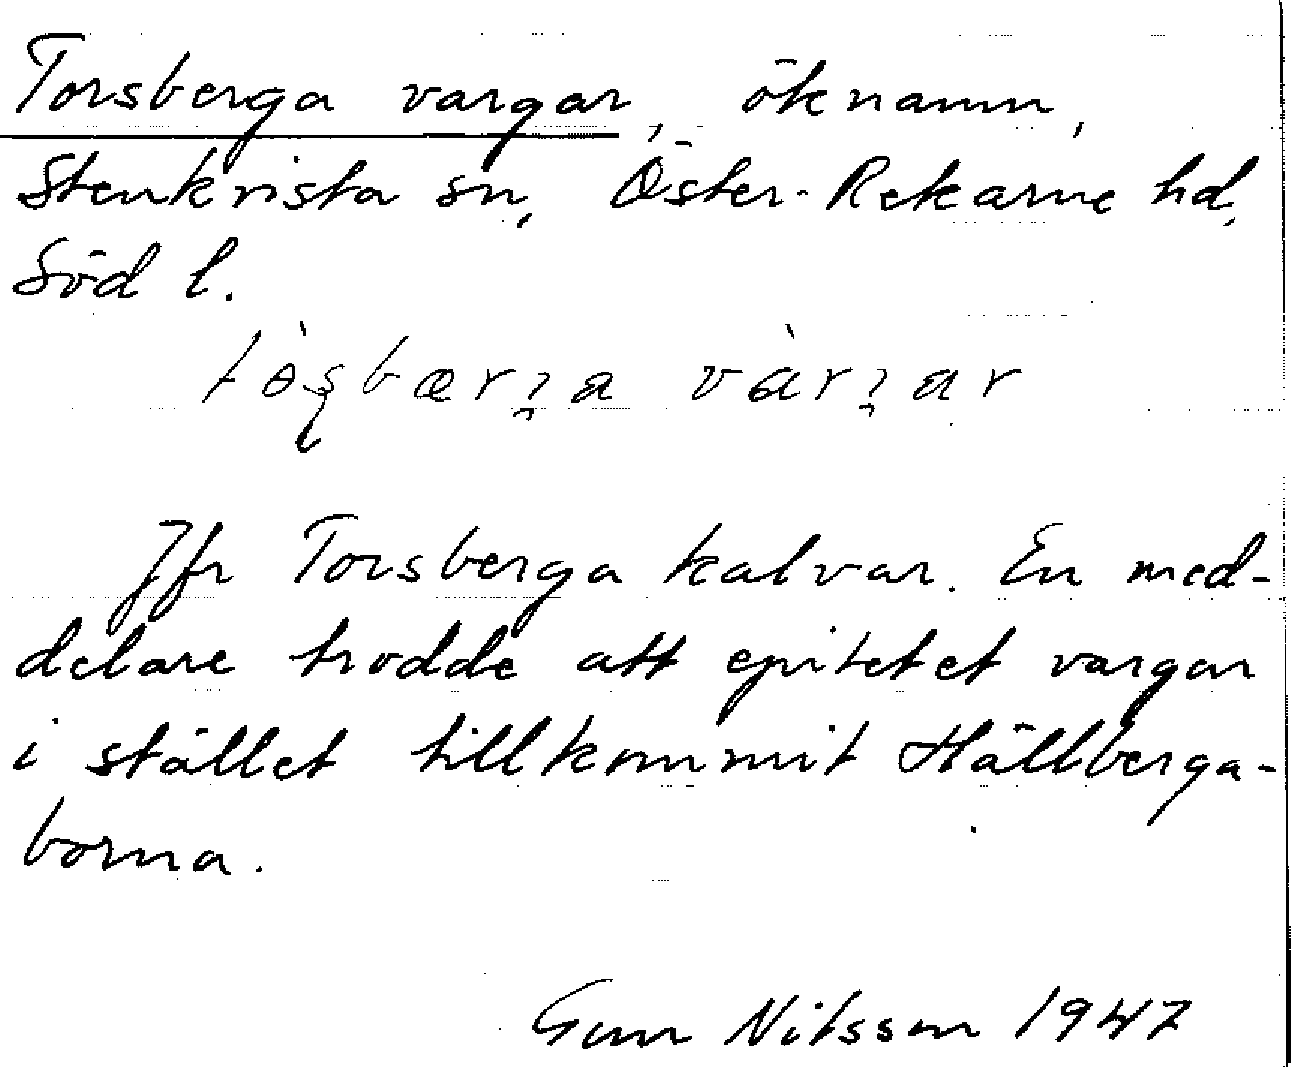 Torsberga vargar, öknamn,
Stenkvista sn, Öster-Rekarne hd,
Söd l.
Jfr Torsberga kalvar. En med-
delare trodde att epitetet vargar
i stället tillkommit Hällberga-
borna.
Gun Nilsson 1947